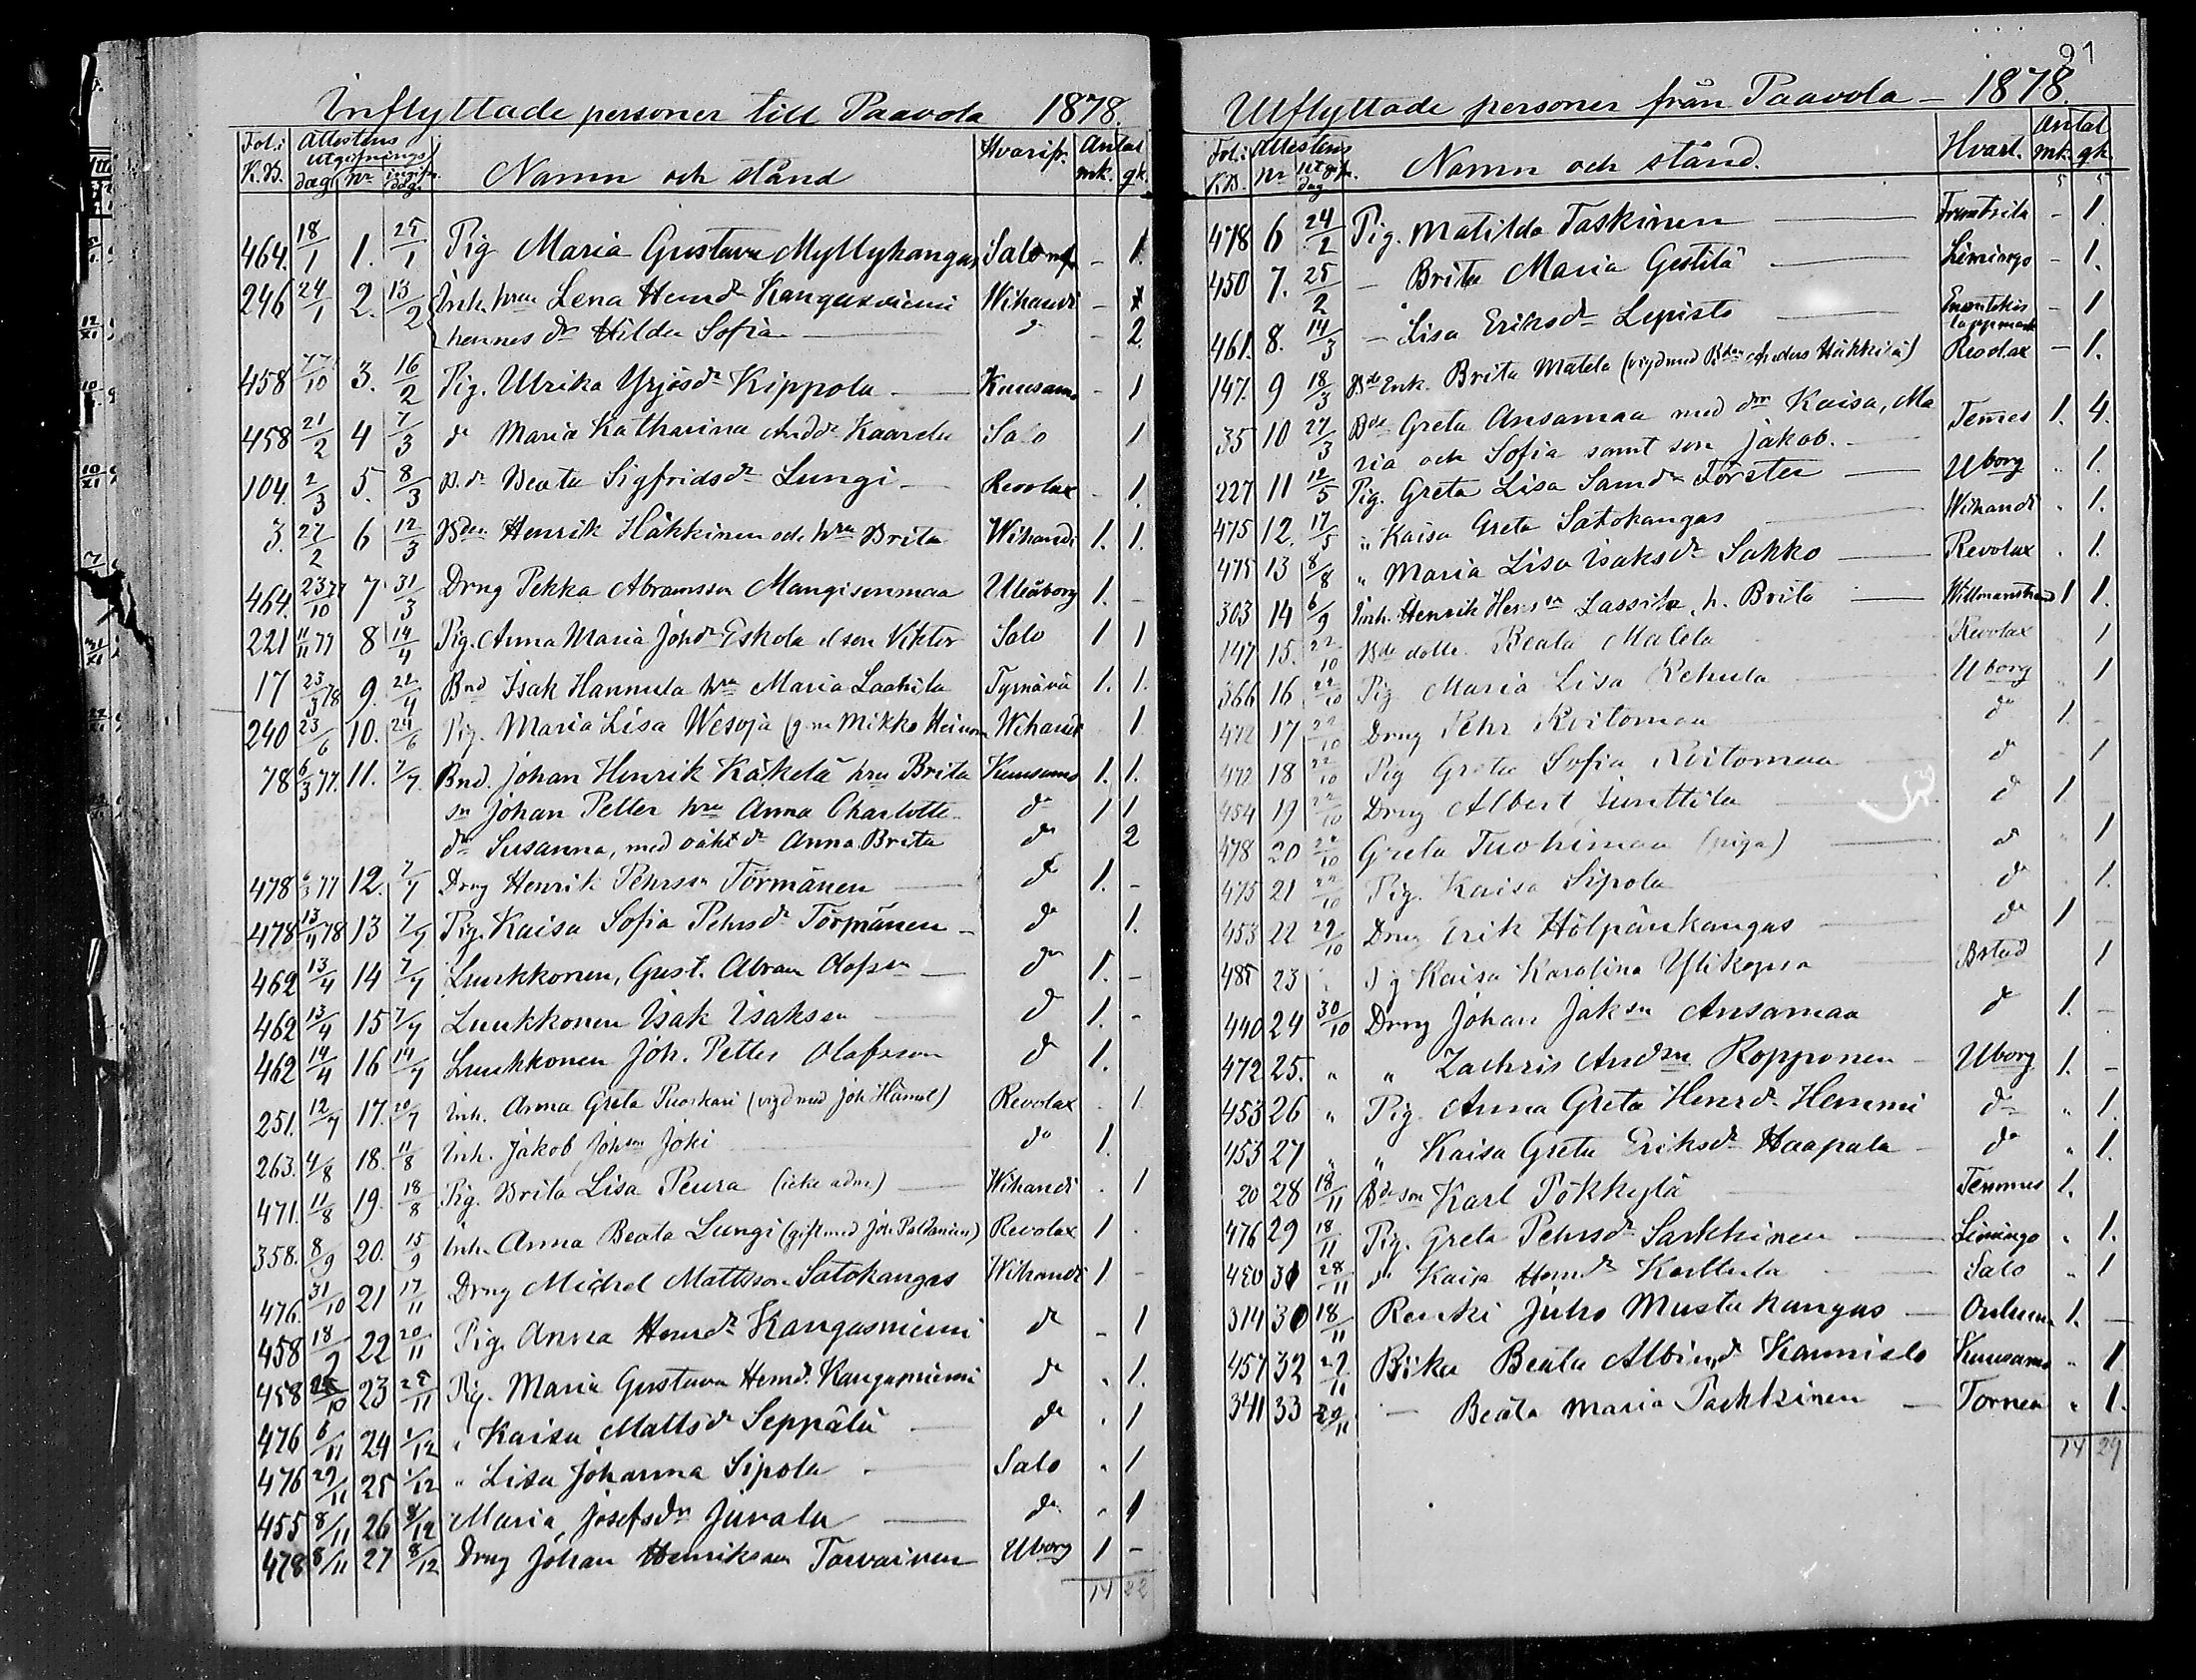 91
Inflyttade personer till Paavola 1878.
Fol. i K.B. Attestens utgifnings dag nr ingifn. dag. Namn och stånd Hvarifr. Antal mk. qk.
464. 18/1 1. 25/1 Pig Maria Gustava Myllykangas Salo - 1.
246 24/1 2. 13/2 Inh. hru Lena Henrdr Kangasniemi Wihandi -
hennes dr Hilda Sofia - do - 2.
458 10 3. 16/2 Pig. Ulrika Yrjösdr Kippola - Kuusamo - 1
458 21/2 4 7/3 do Maria Katharina Andr. Kaarela Salo 1
104. 2/3 5. 8/3 B. dr Beata Sigfridsdr Lungi - Revolax - 1.
3. 27/2 6 12/3 Bden Henrik Häkkinen och hru Brita Wihandi 1. 1.
464. 23/10 77 7 31/3 Drng Pekka Abramsson Mangisenmaa Uleåborg 1. -
221 11/11 77 8 14/4 Pig. Anna Maria Johdr Eskola o son Viktor Salo 1 1
17 23/3 78 9. 22/4 Bnd Isak Hannula hru Maria Laahila Tyrnävä 1. 1.
240 23/6 10. 24/6 Pig. Maria Lisa Wesoja (g.m. Mikko Heinonen Wihandi 1
78 6/3 77. 11. 7/7. Bnd. Johan Henrik Käkelä hru Brita Kuusamo 1. 1.
sn Johan Petter hru Anna Charlotte do 1 1
dr Susanna, med oäkt dr Anna Brita do 2
478 6/3 77 12. 7/7 Drng Henrik Pehrssn Törmänen - do 1. -
478 13/4 78 13 7/7 Pig. Kaisa Sofia Pehrsdr Törmänen - do 1.
462 13/4 14 7/7 Luukkonen, Gust. Abram Olofssn - do 1. -
462 13/4 15 7/7 Luukkonen Isak Isakssn - do 1. -
462 14/4 16 14/7 Luukkonen Joh. Petter Olofsson do 1.
251. 12/7 17. 20/7 Inh. Anna Greta Tuoskari (vigd med Joh Hämäl) Revolax . 1
263. 4/8 18. 11/8 Inh. Jakob Johsson Joki do 1.
471. 11/8 19. 18/8 Pig. Brita Lisa Peura (icke adm.) - Wihandi . 1
358. 8/9 20. 15/9 Inh. Anna Beata Lungi (gift med Joh. Paldanius) Revolax 1 .
476. 31/10 21 17/11 Drng Michel Mattsson Satokangas Wihandi 1 -
458 18/7 22 20/11 Pig. Anna Henrdr Kangasniemi do - 1
458 10 23 11 Pig. Maria Gustava Henrdr Kangasniemi do . 1.
476 6/11 24 1/12 " Kaisa Mattsdr Seppälä do . 1
476 29/11 25 1/12 " Lisa Johanna Sipola - Salo . 1
455 8/11 26 8/12 Maria Josefsdr Juvala - do . 1
478 8/11 27 8/12 Drng Johan Henriksson Tarvainen Uborg 1 -
14 22
Utflyttade personer från Paavola - 1878.
Fol. i KB. Attestens Nr utgifn. dag Namn och stånd. Hvart. Antal mk. qk.
478 6 24/2 Pig. Matilda Taskinen - Frantsila - 1.
450 7. 25/2 - Brita Maria Gestilä - Limingo - 1.
461. 8. 14/3 - Lisa Eriksdr Lepistö - Enontekis lappmark - 1
147. 9 18/3 Bde Enk. Brita Matela (vigd med Bden Anders Häkkilä) Revolax - 1.
35 10 27/3 Bde Greta Ansamaa med drr Kaisa, Ma Temmes 1. 4.
ria och Sofia samt son Jakob. -
227 11 12/5 Pig. Greta Lisa Samdr Förster - Uborg . 1.
475 12. 17/5 " Kaisa Greta Satokangas - Wihandi . 1.
475 13 8/8 " Maria Lisa Isaksdr Sakko - Revolax . 1.
303 14 6/9 Inh. Henrik Henssn Lassila, h. Brita - Willmanstrand 1 1.
147 15. 22/10 Bde dotter Beata Matela Revolax 1
366 16 22/10 Pig Maria Lisa Rehula Uborg . 1
472 17 22/10 Drng Pehr Roitomaa do 1. -
472 18 22/10 Pig Greta Sofia Roitomaa do - 1
454 19 22/10 Drng Albert Junttila do 1. -
478 20 22/10 Greta Tuohimaa (piga) - do " 1
475 21 22/10 Pig. Kaisa Sipola do . 1.
453 22 29/10 Drng Erik Hölpänkangas - do 1 -
485 23 Pig Kaisa Karolina Ylikopsa Bstad 1
440 24 30/10 Drng Johan Jakssn Ansamaa do 1. -
472 25. " " Zachris Andssn Ropponen - Uborg 1. -
453 26 " Pig. Anna Greta Henrsdr Hemmi do " 1.
453 27 " " Kaisa Greta Eriksdr Haapala - do " 1.
20 28 18/11 Bdeson Karl Pökkylä Temmes 1.
476 29 18/11 Pig. Greta Pehrsdr Sarkkinen - Limingo . 1.
31 28/11 do Kaisa Henrdr Karttula - Salo " 1
314 30 18/11 Renki Juho Mustakangas - Oulun 1. -
457 32 11 Piika Beata Albinsdr Kannisto Kuusamo " 1
341 33 29/11 - Beata Maria Parkkinen - Torneå " 1.
14 29